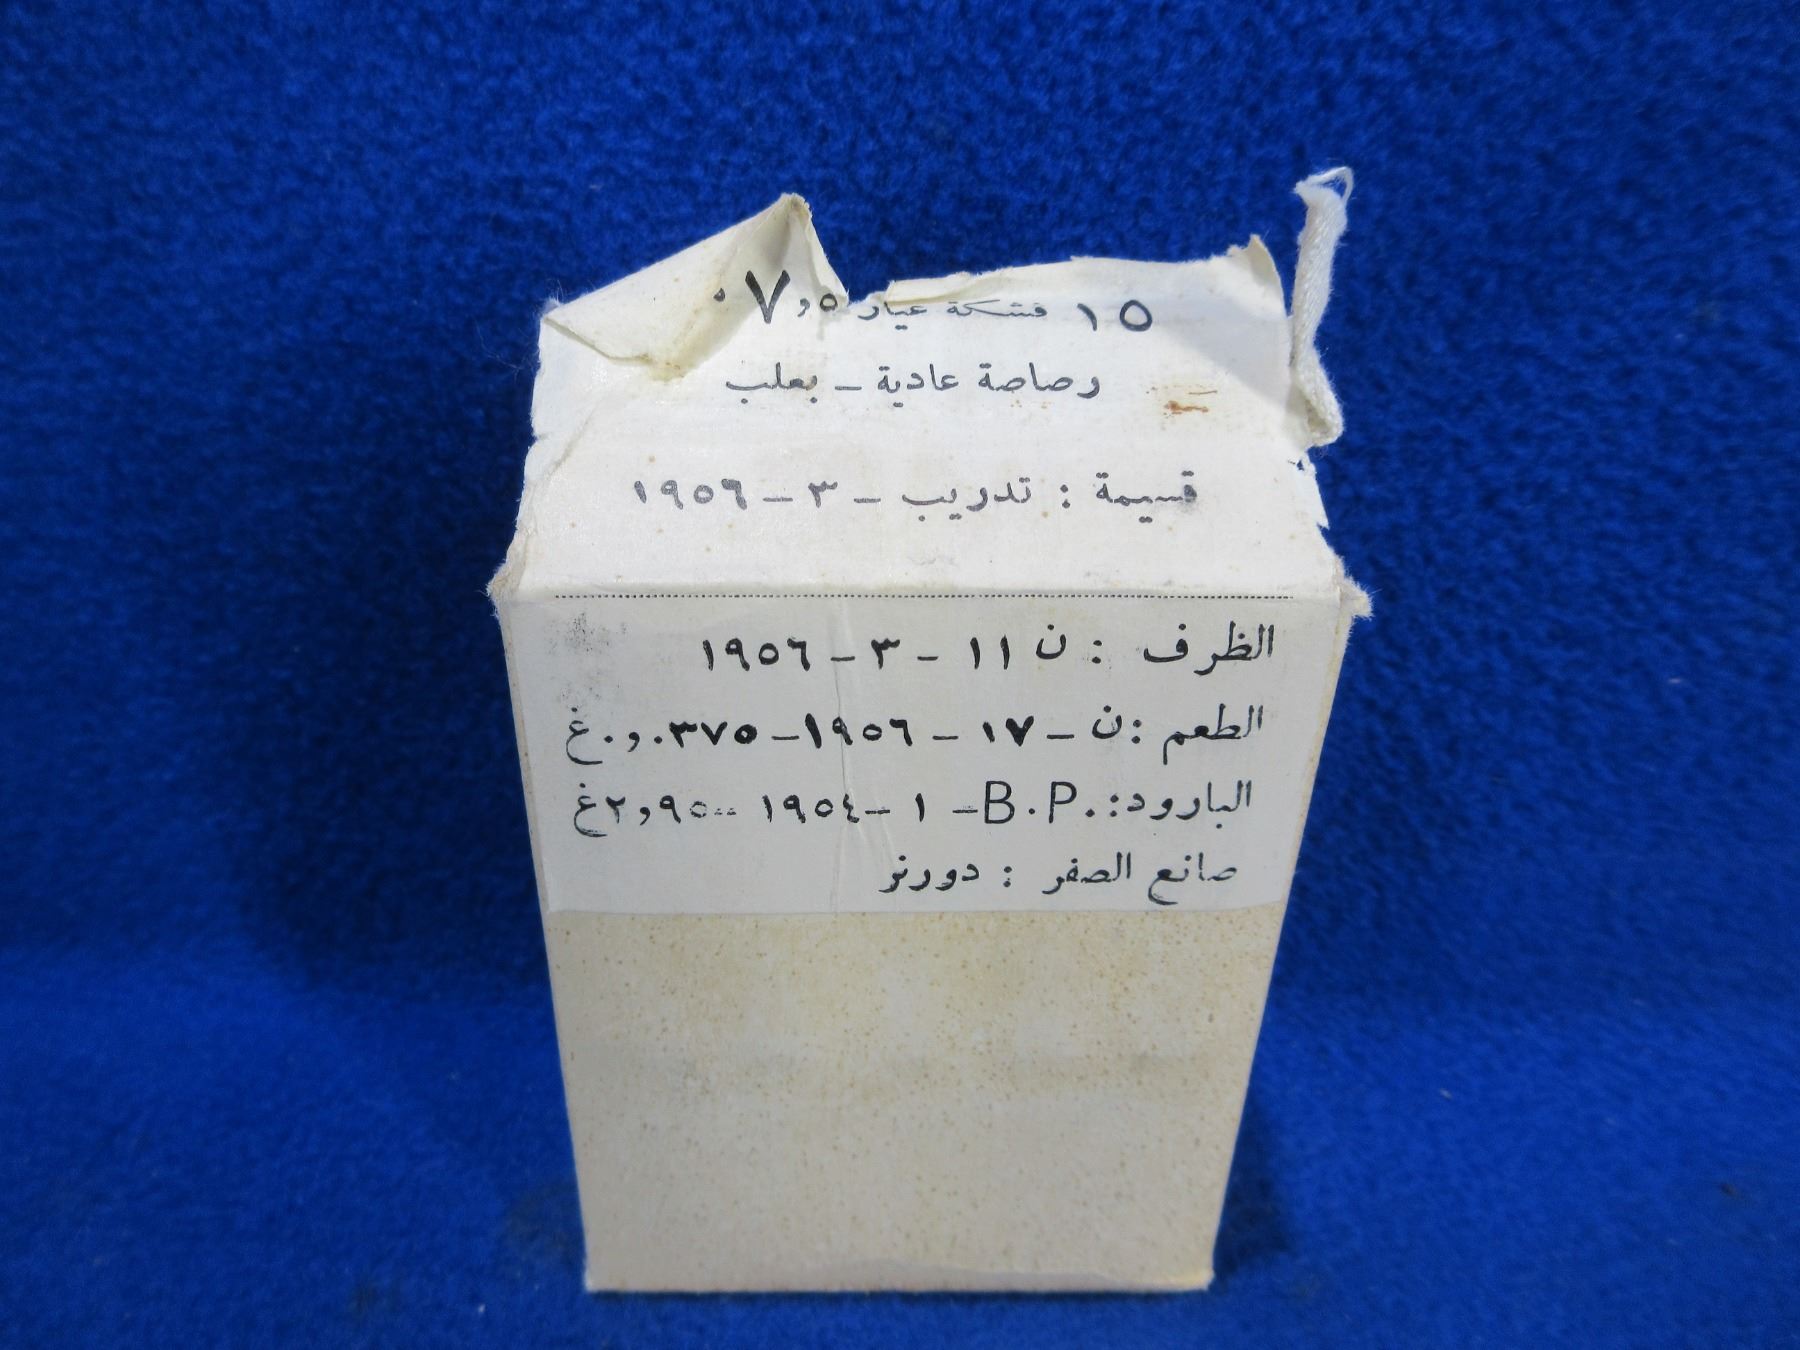 ١٥ فشكة عيار ٧,٥٠
رصاصة عادية - بعلب
قسيمة : تدريب - ٣ - ١٩٥٦
الظرف : ن ١١ - ٣ - ١٩٥٦
الطعم : ن - ١٧ - ١٩٥٦ - ٠,٠٣٧٥غ
البارود: .B.P - ١ - ١٩٥٤ - ٢,٩٥غ
صانع الصفر : دورنز